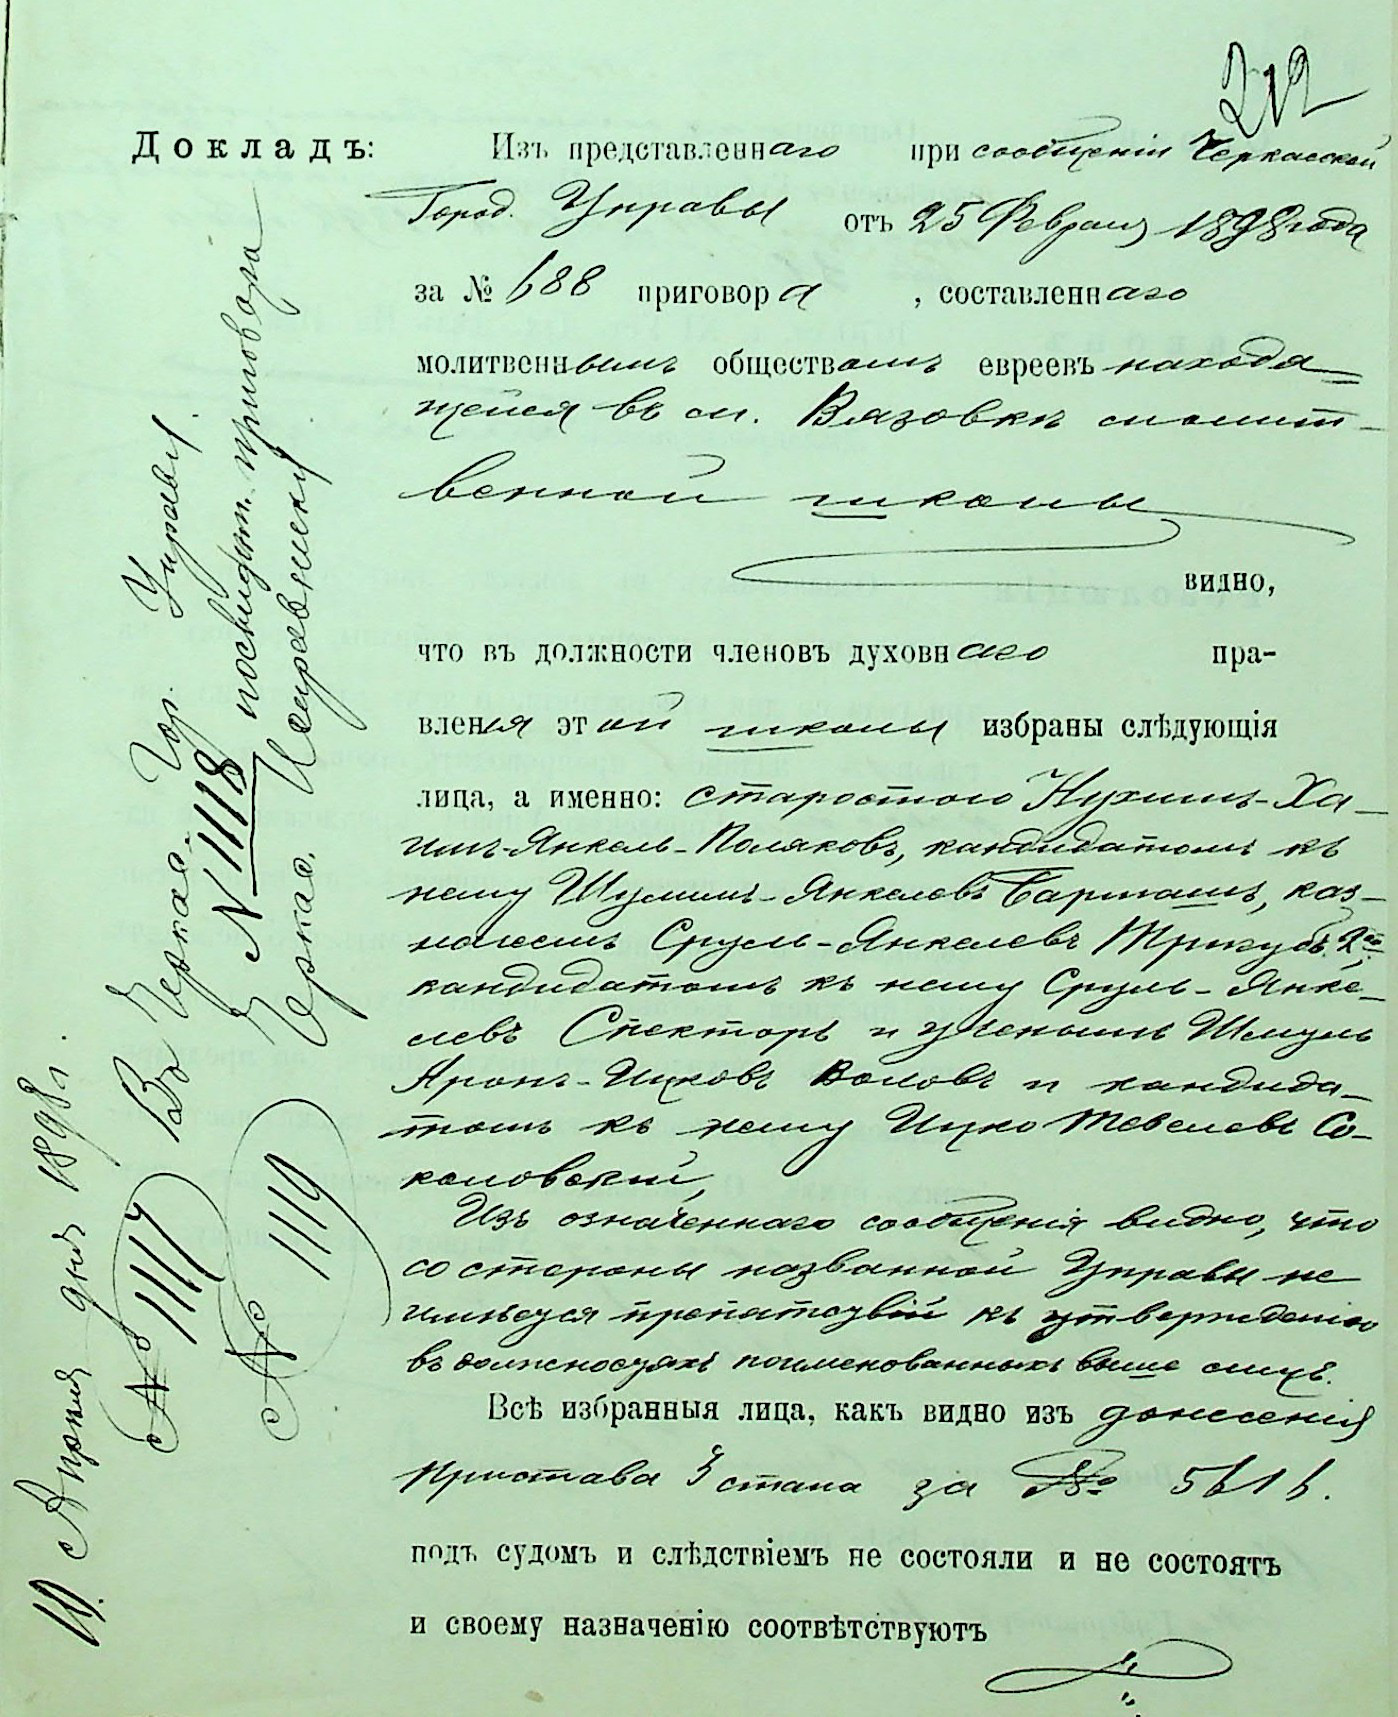 212
Докладъ:
Изъ представленнаго при сообщеніи Черкасской
Город. Управы отъ 25 Февраля 1898 года
за № 688 приговора, составленнаго
молитвеннымъ обществомъ евреевъ находя-
щейся въ м. Вязовкѣ молит-
венной школы
видно,
что въ должности членовъ духовнаго пра-
вленія этой школы избраны слѣдующія
лица, а именно: старостою Нухимъ-Ха-
имъ-Янкель-Поляковъ, кандидатомъ къ
нему Шулимъ-Янкелевъ Барташъ, каз-
начеемъ Сруль-Янкелевъ Тригубъ 2й,
кандидатомъ къ нему Сруль-Янке-
левъ Спекторъ и ученымъ Шмуль
Аронъ-Ицковъ Воловъ и кандида-
томъ къ нему Ицко Тевелевъ Со-
коловскій,
Изъ означеннаго сообщенія видно, что
со стороны названной Управы не
имѣется препятствій къ утвержденію
въ должностяхъ поименованныхъ выше лицъ.
Всѣ избранныя лица, какъ видно изъ донесенія
Пристава 3 стана за № 5616.
подъ судомъ и слѣдствіемъ не состояли и не состоятъ
и своему назначенію соотвѣтствуютъ
10. Апрѣля дня 1898 г.
№ 1117 Въ Черкас. Гор. Управу.
№ 1118 посвидѣт. приговора
№ 1119 Черкас. Исправнику